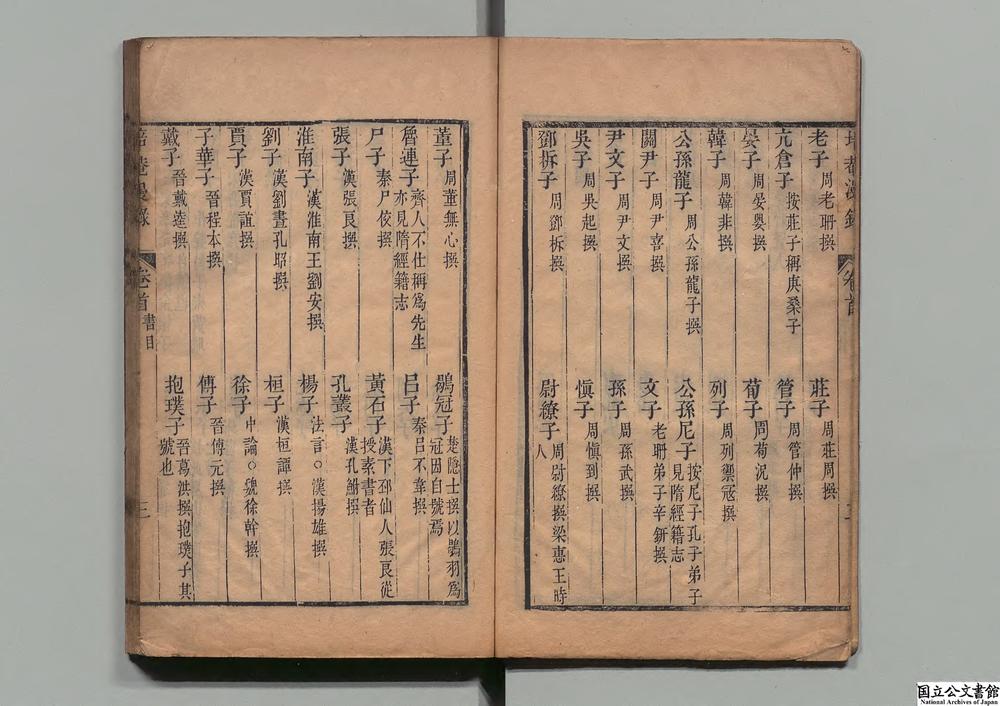 老子 周老聃撰 莊子 周莊周撰
亢倉子 按莊子稱庚桑子 管子 周管仲撰
晏子 周晏嬰撰 荀子 周荀況撰
韓子 周韓非撰 列子 周列禦寇撰
公孫龍子 周公孫龍子撰 公孫尼子 按尼子孔子弟子見隋經籍志
關尹子 周尹喜撰 文子 老聃弟子辛鈃撰
尹文子 周尹文撰 孫子 周孫武撰
吳子 周吳起撰 慎子 周慎到撰
鄧柝子 周鄧柝撰 尉繚子 周尉繚撰梁惠王時人
董子 周董無心撰 鶡冠子 楚隱士撰以鶡羽為冠因自號焉
魯連子 齊人不仕稱為先生亦見隋經籍志 呂子 秦呂不韋撰
尸子 秦尸佼撰 黃石子 漢下邳仙人張良從授素書者
張子 漢張良撰 孔叢子 漢孔鮒撰
淮南子 漢淮南王劉安撰 楊子 法言○漢揚雄撰
劉子 漢劉晝孔昭撰 桓子 漢桓譚撰
賈子 漢賈誼撰 徐子 中論○魏徐幹撰
子華子 晉程本撰 傅子 晉傅元撰
戴子 晉戴逵撰 抱璞子 晉葛洪撰抱璞子其號也
卷首 書目 三
国立公文書館
National Archives of Japan